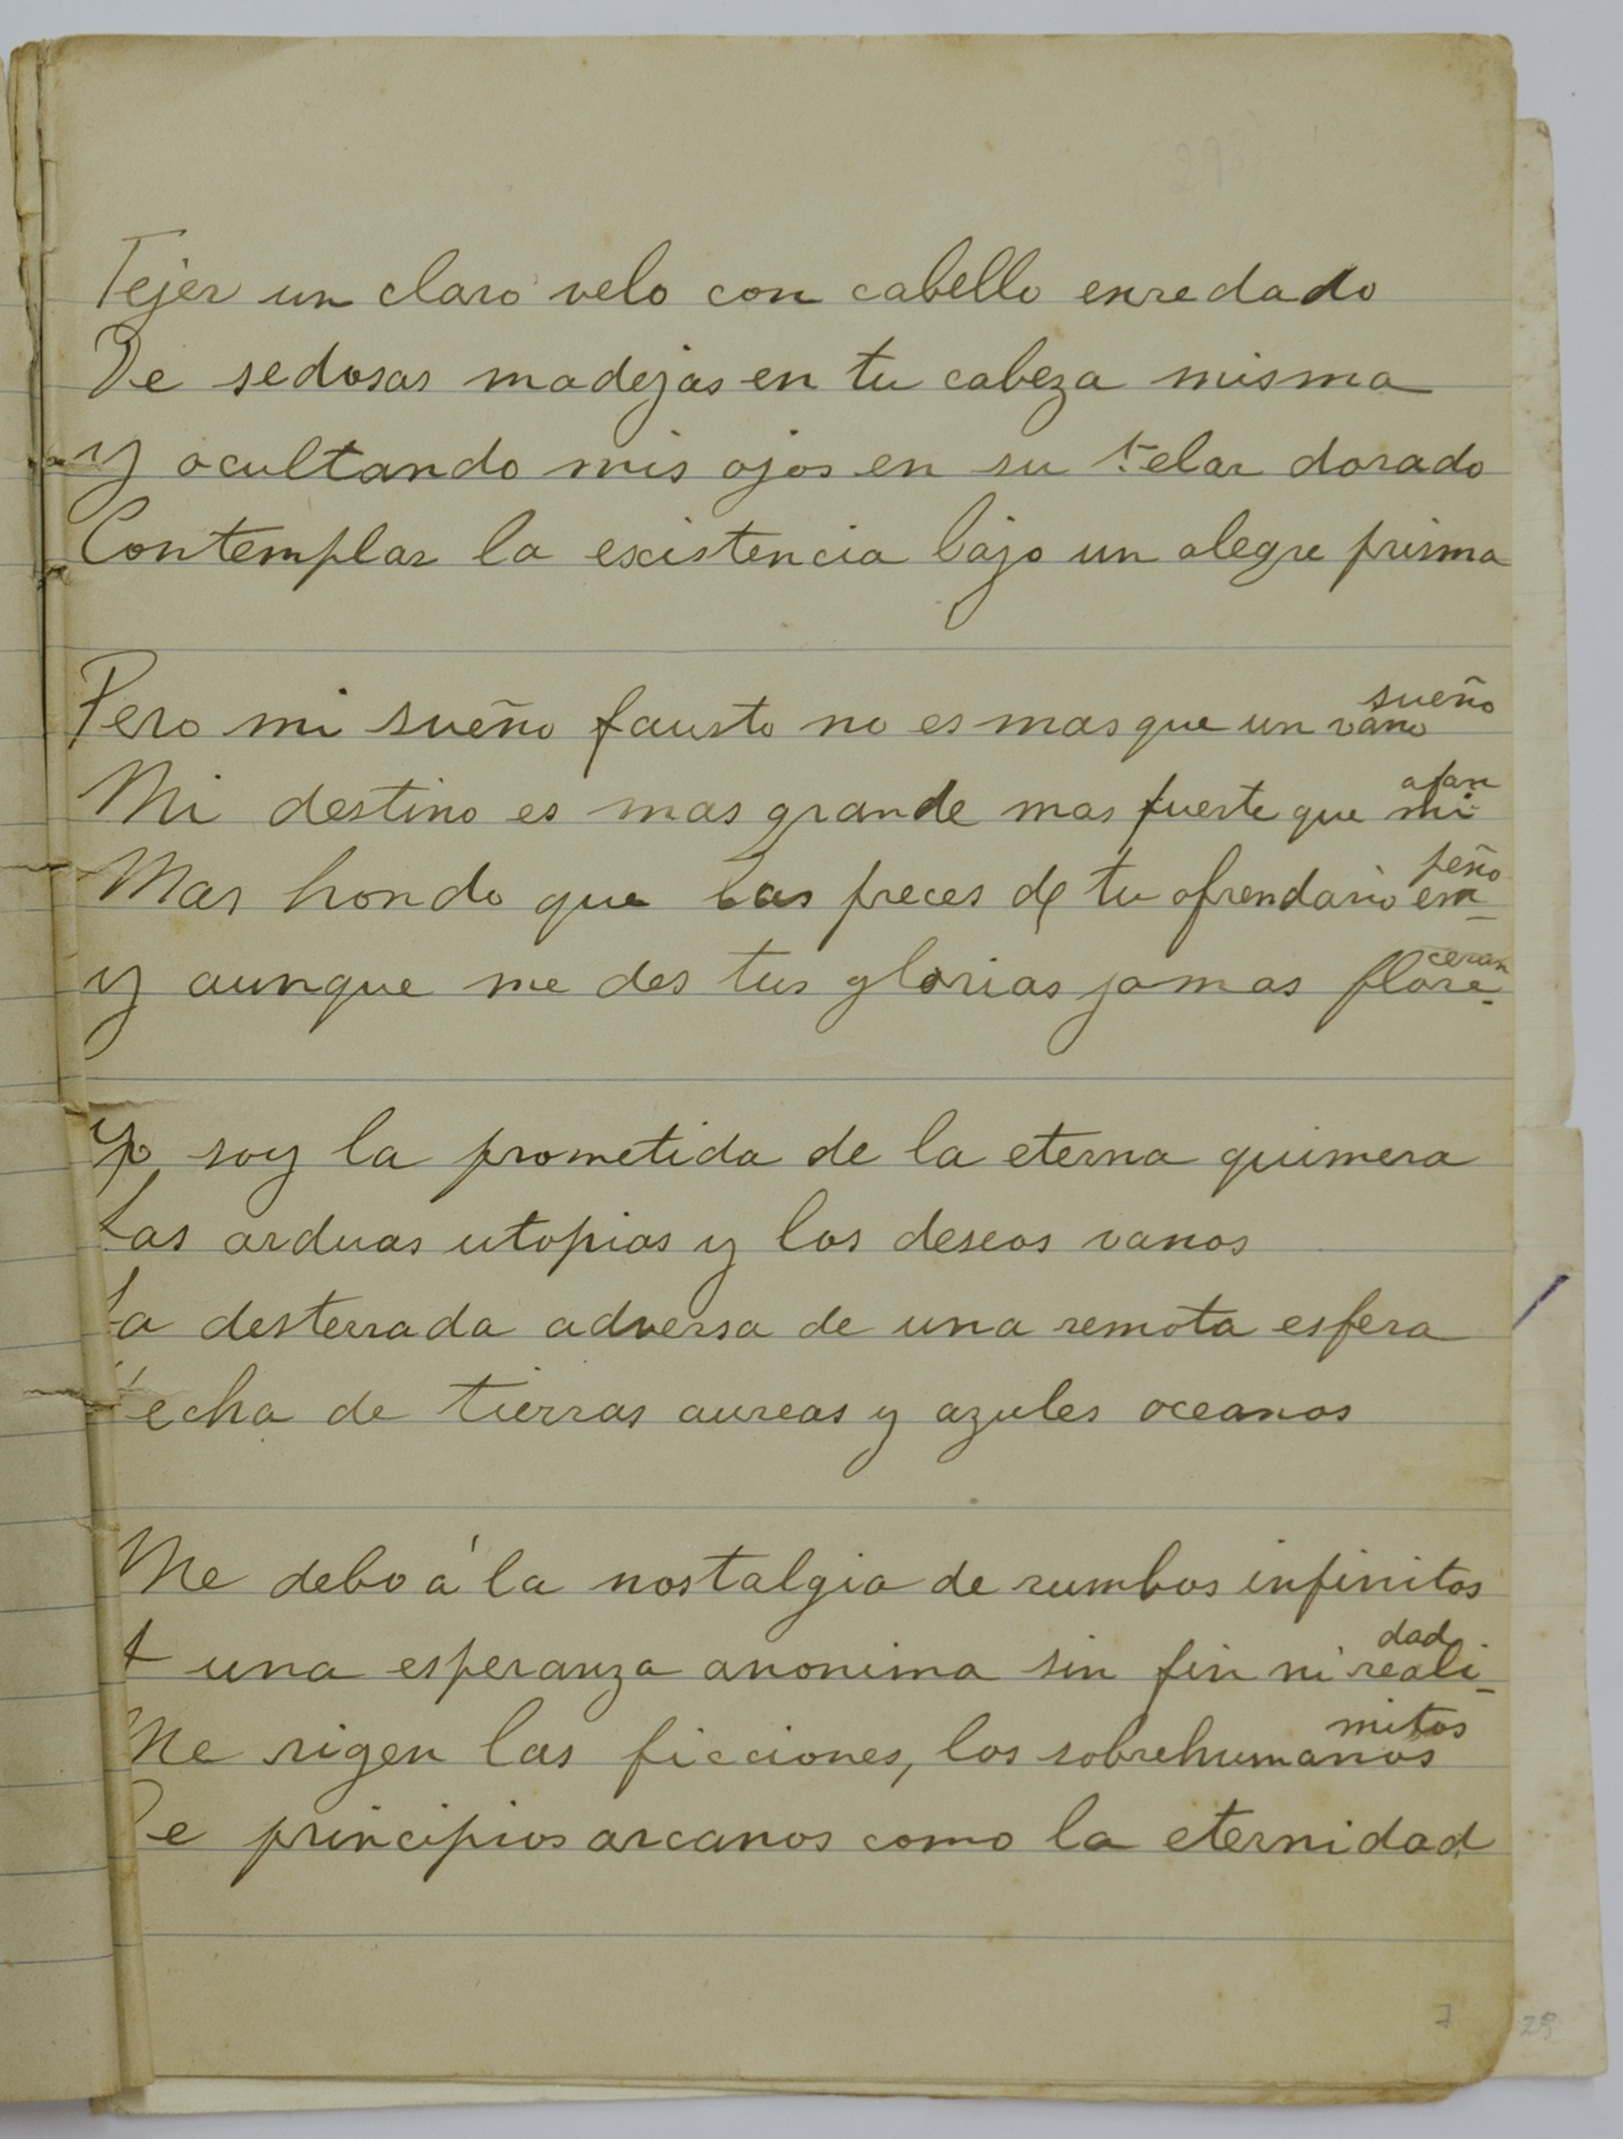 Tejer un claro velo con cabello enredado
De sedosas madejas en tu cabeza misma
y ocultando mis ojos en su telar dorado
Contemplar la existencia bajo un alegre prisma
Pero mi sueño fausto no es mas que un vano sueño
Mi destino es mas grande mas fuerte que mi afan
Mas hondo que las preces de tu ofrendario em-peño
y aunque me des tus glorias jamas flore-ceran
Yo soy la prometida de la eterna quimera
Las arduas utopias y los deseos vanos
La desterrada adversa de una remota esfera
echa de tierras aureas y azules oceanos
Me debo á la nostalgia de rumbos infinitos
A una esperanza anonima sin fin ni reali-dad
Me rigen las ficciones, los sobrehumanos mitos
De principios arcanos como la eternidad
7